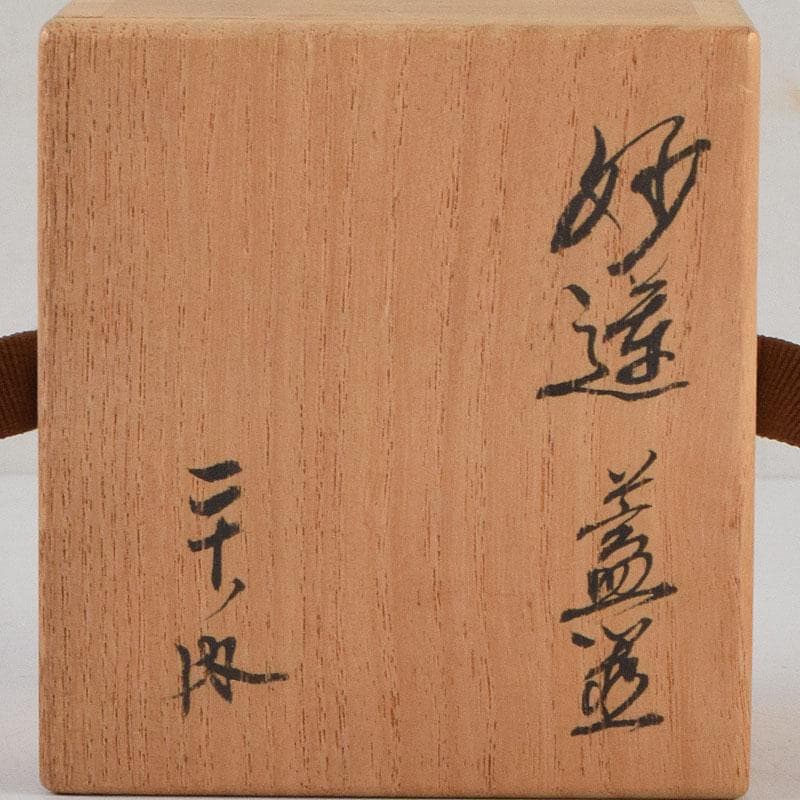 妙蓮 蓋置
二十ノ内